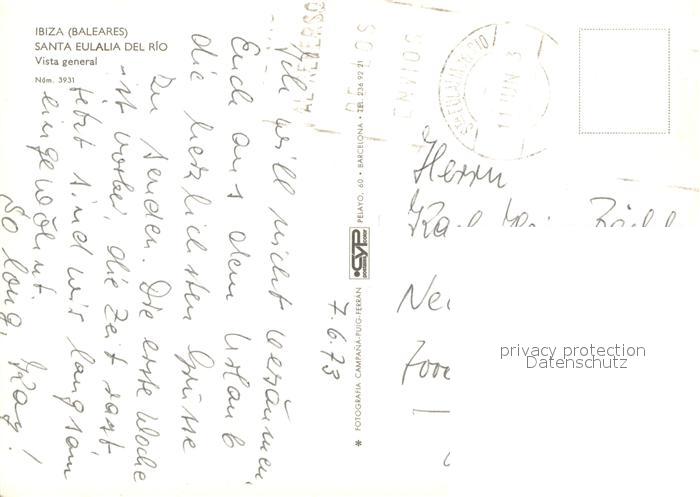 IBIZA (BALEARES)
SANTA EULALIA DEL RÍO
Vista general
Núm. 3931
7.6.73
Ich will nicht versäumen,
Euch aus dem Urlaub
die herzlichsten Grüsse
zu senden. Die erste Woche
ist vorbei, die Zeit rast,
jetzt sind wir langsam
eingewöhnt.
So long, Kay!
* FOTOGRAFIA CAMPAÑA-PUIG-FERRAN
CYP
PELAYO, 60 • BARCELONA • TEL. 236 92 21
AL REVERSO
DE LOS
ENVIOS
STA EULALIA DEL RIO
11 JUN
Herrn
privacy protection
Datenschutz